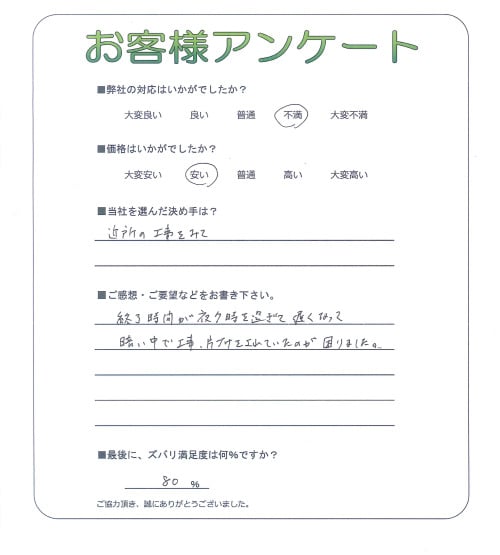 お客様アンケート
■弊社の対応はいかがでしたか？
大変良い 良い 普通 不満 大変不満
■価格はいかがでしたか？
大変安い 安い 普通 高い 大変高い
■当社を選んだ決め手は？
近所の工事をみて
■ご感想・ご要望などをお書き下さい。
終了時間が夜7時を過ぎて遅くなって
暗い中で工事、片付をされていたのが困りました。
■最後に、ズバリ満足度は何％ですか？
80 ％
ご協力頂き、誠にありがとうございました。